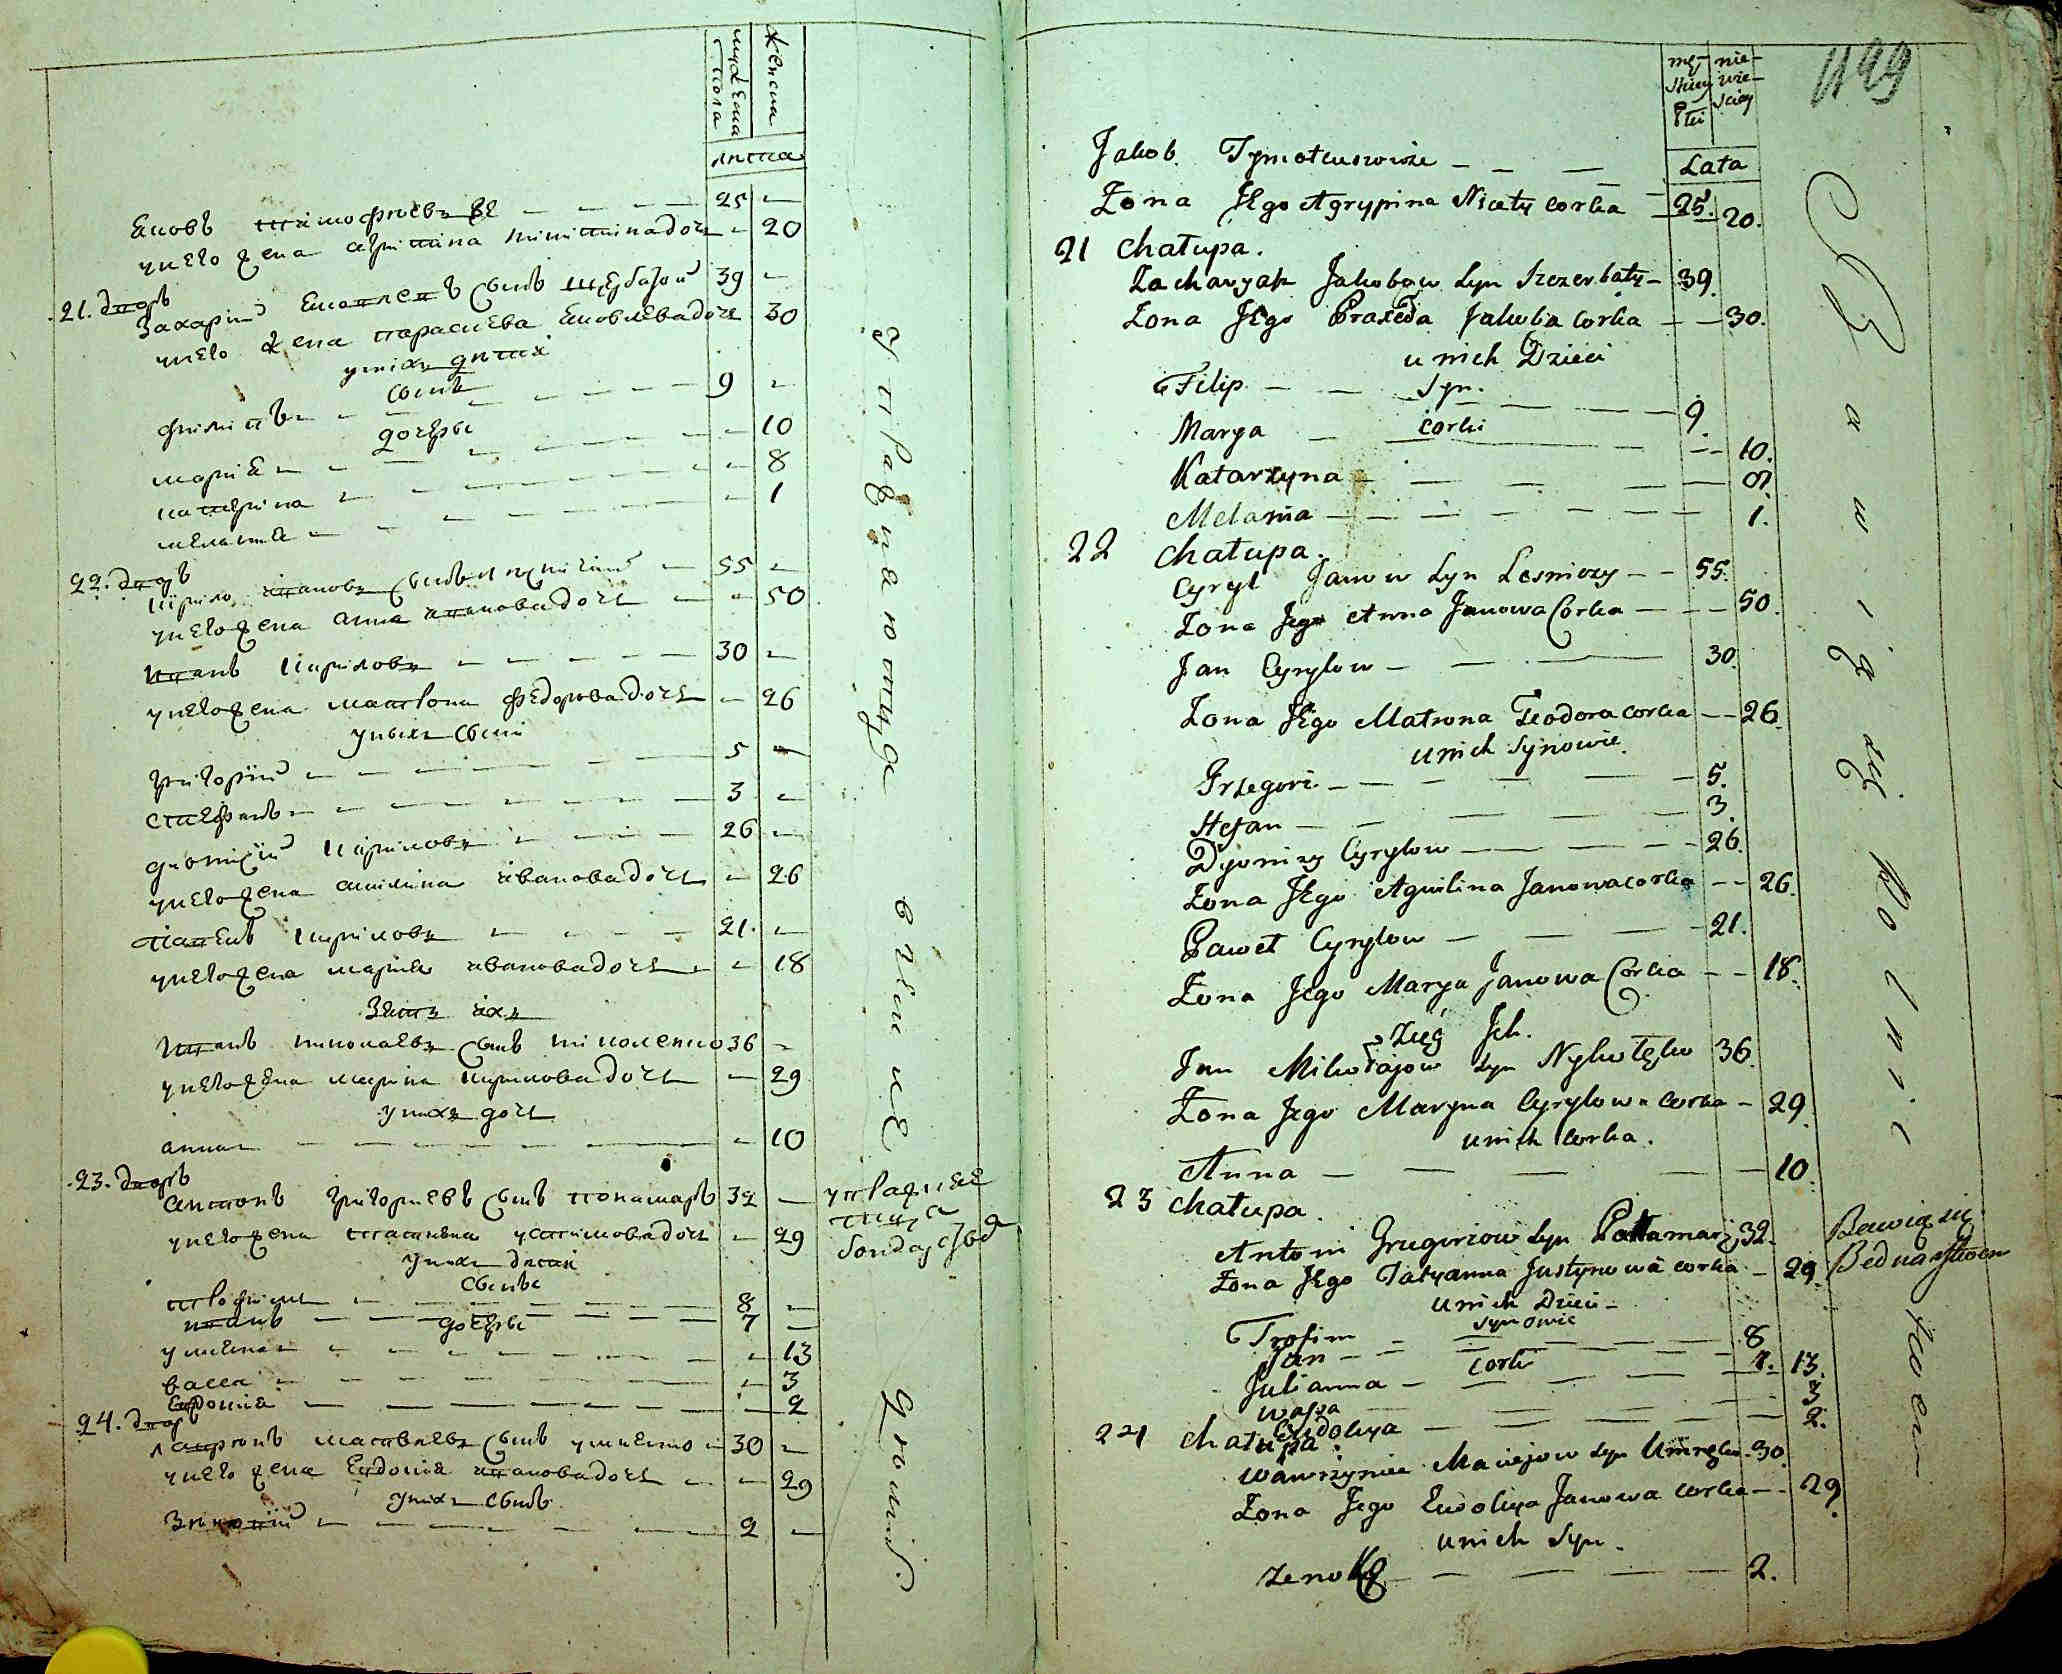 мужеска
пола
женска
лѣта
Яковъ Тимофѣевъ — — — 25 —
у него жена Агрипина Никитина дочь — 20
21. дворъ
Захарій Яковлевъ сынъ Щербатой 39 —
у него жена Параскева Яковлева дочь 30
у нихъ дѣти
сынъ
Филипъ — — — 9 —
дочери
Марія — — — 10
Катерина — — — 8
Меланія — — — 1
22. дворъ
Кирило Ивановъ сынъ — 55 —
у него жена Анна Иванова дочь — — 50
Иванъ Кириловъ — — — 30 —
у него жена Матрона Федорова дочь — 26
у нихъ сыни
Григорій — — — 5 —
Стефанъ — — — 3 —
Діонисій Кириловъ — — — 26 —
у него жена Акилина Иванова дочь — 26
Павелъ Кириловъ — — — 21. —
у него жена Марія Иванова дочь — — 18
Зять ихъ
Иванъ Николаевъ сынъ Николенко 36 —
у него жена Марина Кирилова дочь — 29
у нихъ дочь
Анна — — — 10
23. дворъ
Антонъ Григориевъ сынъ Понамарь 32 —
у него жена Татияна Устимова дочь — 29
у нихъ дѣти
сыны
Трофимъ — — — 8 —
Иванъ — — — 7 —
дочери
Улияна — — — 13
Васса — — — 3
Евдокия — — — 2
24. дворъ
Лаврѣнъ Матвѣевъ сынъ — 30 —
у него жена Евдокия Иванова дочь — — 29
у нихъ сынъ
Зѣновій — — — 2 —
упражняютца
в ремле
упражняе
тца
бондарство
mę-
skiey
Płci
nie-
wie-
sciey
Lata
1149
Jakob Tymoteuszowicz — — —
Żona Jego Agrypina Nikity corka — 25. 20.
21 Chałupa.
Zacharyasz Jakobow syn Szczerbaty — 39.
Żona Jego Praxeda Jakoba corka — — 30.
u nich Dzieci
Filip — — Syn. — — — 9.
Marya — corki — — 10.
Katarzyna — — — 8.
Melania — — — 1.
22 Chałupa.
Cyryl Janow syn Lesniczy — — 55.
Żona Jego Anna Janowa Corka — — — 50.
Jan Cyrylow — — — 30.
Żona Jego Matrona Teodora corka — — 26.
u nich Synowie.
Grzegorz — — — 5.
Stefan — — — 3.
Dyonizy Cyrylow — — — 26.
Żona Jego Aquilina Janowa corka — — 26.
Paweł Cyrylow — — — 21.
Żona Jego Marya Janowa Corka — — 18.
Zięć Ich.
Jan Mikołajow syn 36.
Żona Jego Maryna Cyrylowa corka — 29.
u nich corka.
Anna — — — 10.
23 Chałupa.
Antoni Gregoriow syn Pattamarz 32.
Żona Jego Tatyanna Justynowa corka — 29.
u nich Dzieci —
synowie
Trofim — — — 8
Jan — — — 7.
corki
Julianna — — — 13.
Wassa — — — 3
Eudokya — — — 2.
24 Chałupa.
Wawrzyniec Maciejow syn — 30.
Żona Jego Eudokya Janowa corka — — 29.
u nich Syn.
Zenoby — — — 2.
Bawią się
Bednarstwem
Bawią się Rolnictwem